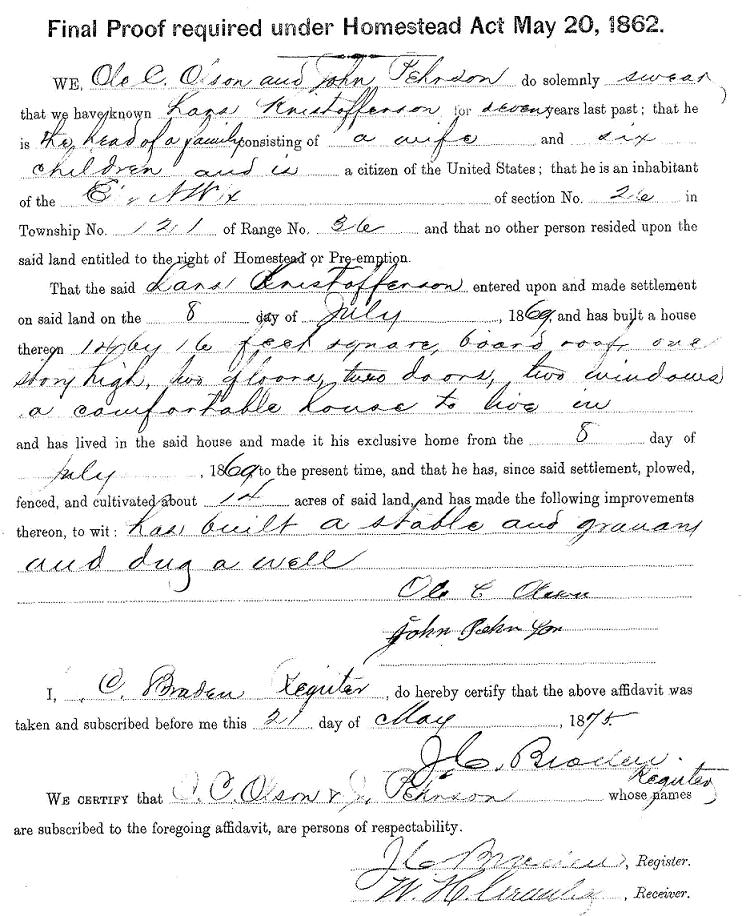 Final Proof required under Homestead Act May 20, 1862.
WE, Ole C. Olson and John Pehrson do solemnly swear
that we have known Lars Kristofferson for seven years last past; that he
is the head of a family consisting of a wife and six
children and is a citizen of the United States; that he is an inhabitant
of the E NW of section No. 26 in
Township No. 121 of Range No. 36 and that no other person resided upon the
said land entitled to the right of Homestead or Pre-emption.
That the said Lars Kristofferson entered upon and made settlement
on said land on the 8 day of July, 1869, and has built a house
thereon 14 by 16 feet square, board roof one
story high, two floors, two doors, two windows
a comfortable house to live in
and has lived in the said house and made it his exclusive home from the 8 day of
July, 1869 to the present time, and that he has, since said settlement, plowed,
fenced, and cultivated about 14 acres of said land, and has made the following improvements
thereon, to wit: has built a stable and granary
and dug a well
Ole C Olson
John Pehrson
I, C. Braden Register, do hereby certify that the above affidavit was
taken and subscribed before me this 21 day of May, 1875
J C. Braden
Register
WE CERTIFY that O. C. Olson & J. Pehrson whose names
are subscribed to the foregoing affidavit, are persons of respectability.
J C Braden, Register.
W. H. , Receiver.